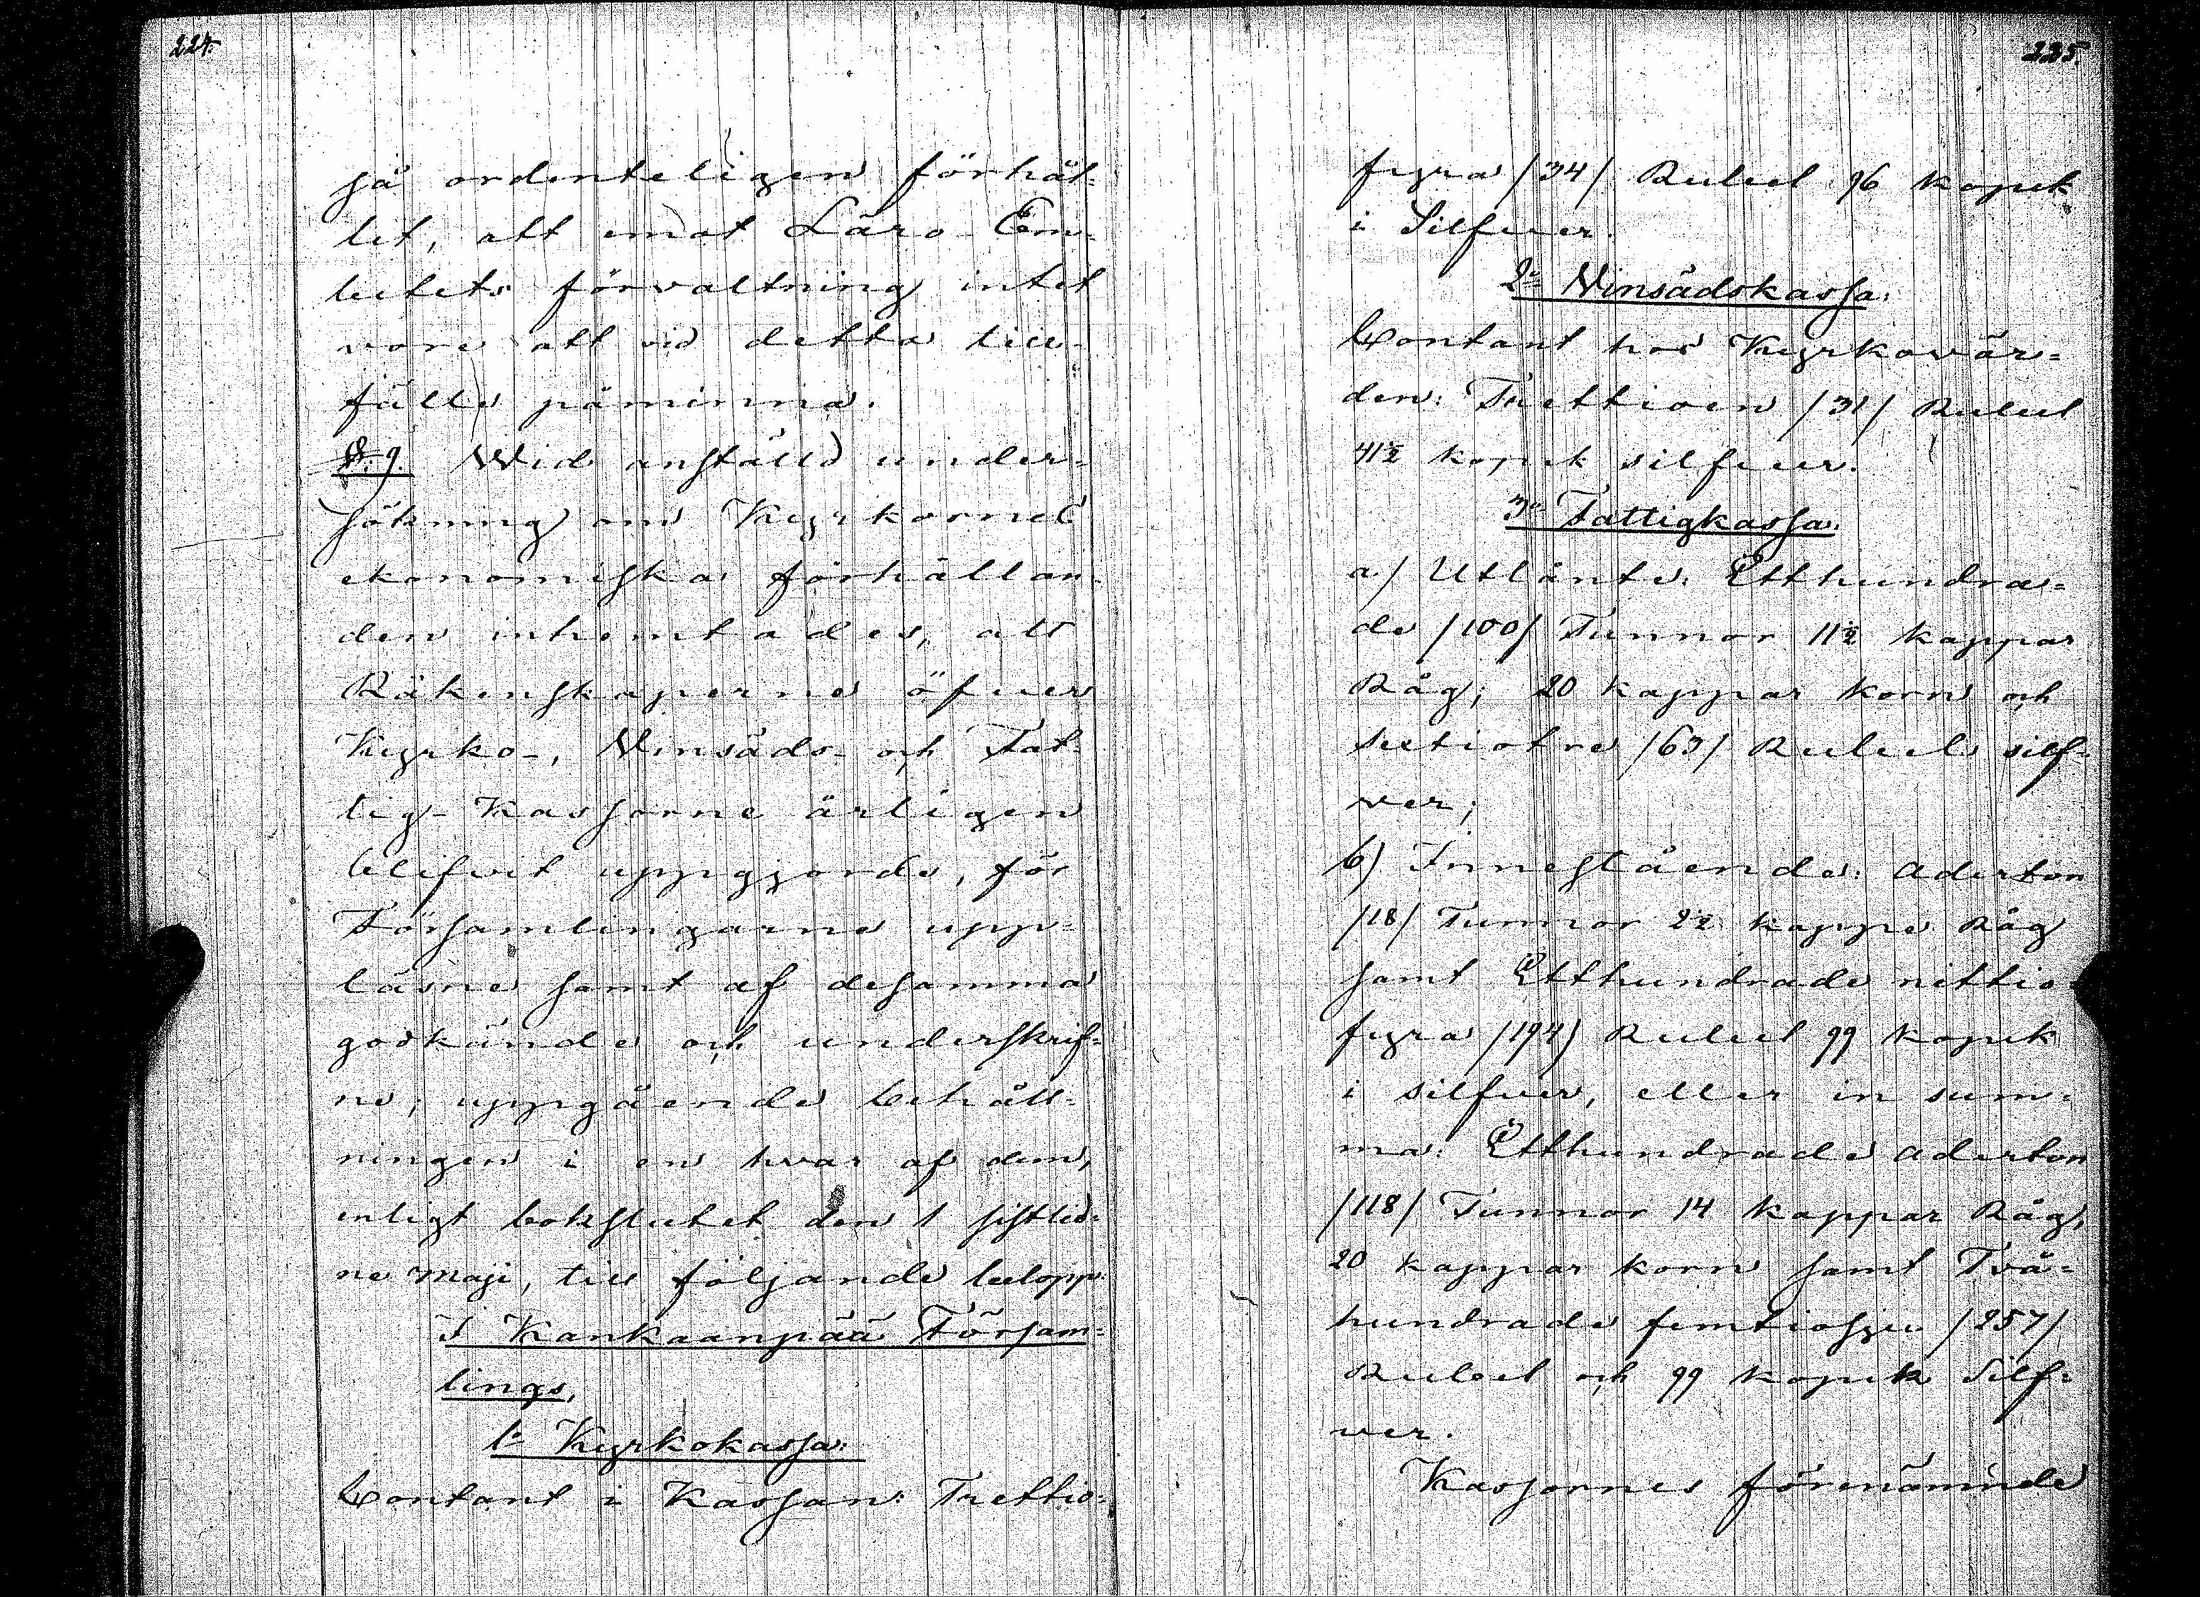 224.
så ordenteligen förhål-
let, att emot Läro-Em-
betets förvaltning intet
vore att vid detta till-
fälle påminna.
§ 9. Wid anställd under-
sökning om Kyrkornes
ekonomiska förhållan-
den inhemtades, att
Räkenskaperne öfver
Kyrko-, Vinsäds- och Fat-
tig-Kassorne årligen
blifvit uppgjorde, för
Församlingarne upp-
läsne samt af desamma
godkände och underskrif-
ne; uppgående behåll-
ningen i en hvar af dem,
enligt bokslutet den 1 sistlid-
ne Maji, till följande belopp:
I Kankaanpää Försam-
lings,
1o Kyrkokassa:
Contant i Kassan: Trettio-
225.
fyra /34/ Rubel 96 kopek
i Silfver.
2o Vinsädskassa:
Contant hos Kyrkovär-
den: Trettioen /31/ Rubel
41½ kopek silfver.
3o Fattigkassa:
a/ Utlånte: Etthundra-
de /100/ Tunnor 11½ kappar
Råg; 20 kappar korn och
sextiotre /63/ Rubel silf-
ver;
b) Innestående: Aderton
/18/ Tunnor 2½ kappe Råg
samt Etthundrade nittio-
fyra /194/ Rubel 99 kopek
i silfver, eller in sum-
ma: Etthundrade Aderton
/118/ Tunnor 14 kappar Råg,
20 kappar korn samt Två-
hundrade femtiosju /257/
Rubel och 99 kopek Silf-
ver.
Kassornes förenämnde